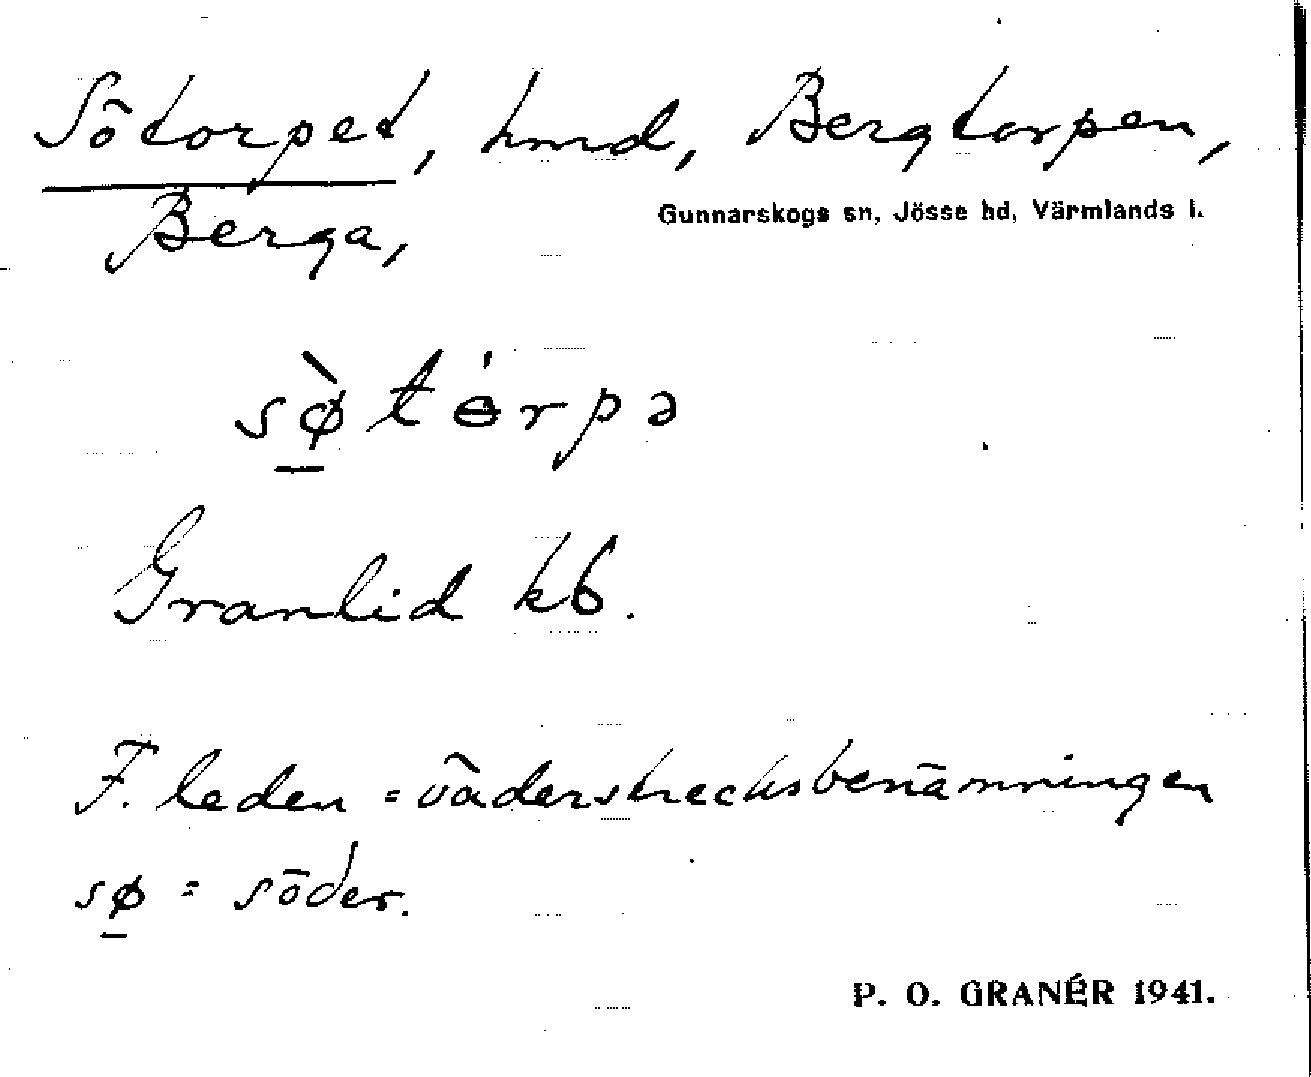 Sötorpet, hmd, Bergtorpen,
Berga,
Gunnarskogs sn, Jösse hd, Värmlands l.
sø̀tɵ́rpə
Granlid kb.
F. leden = väderstrecksbenämningen
sø = söder.
P. O. GRANÉR 1941.